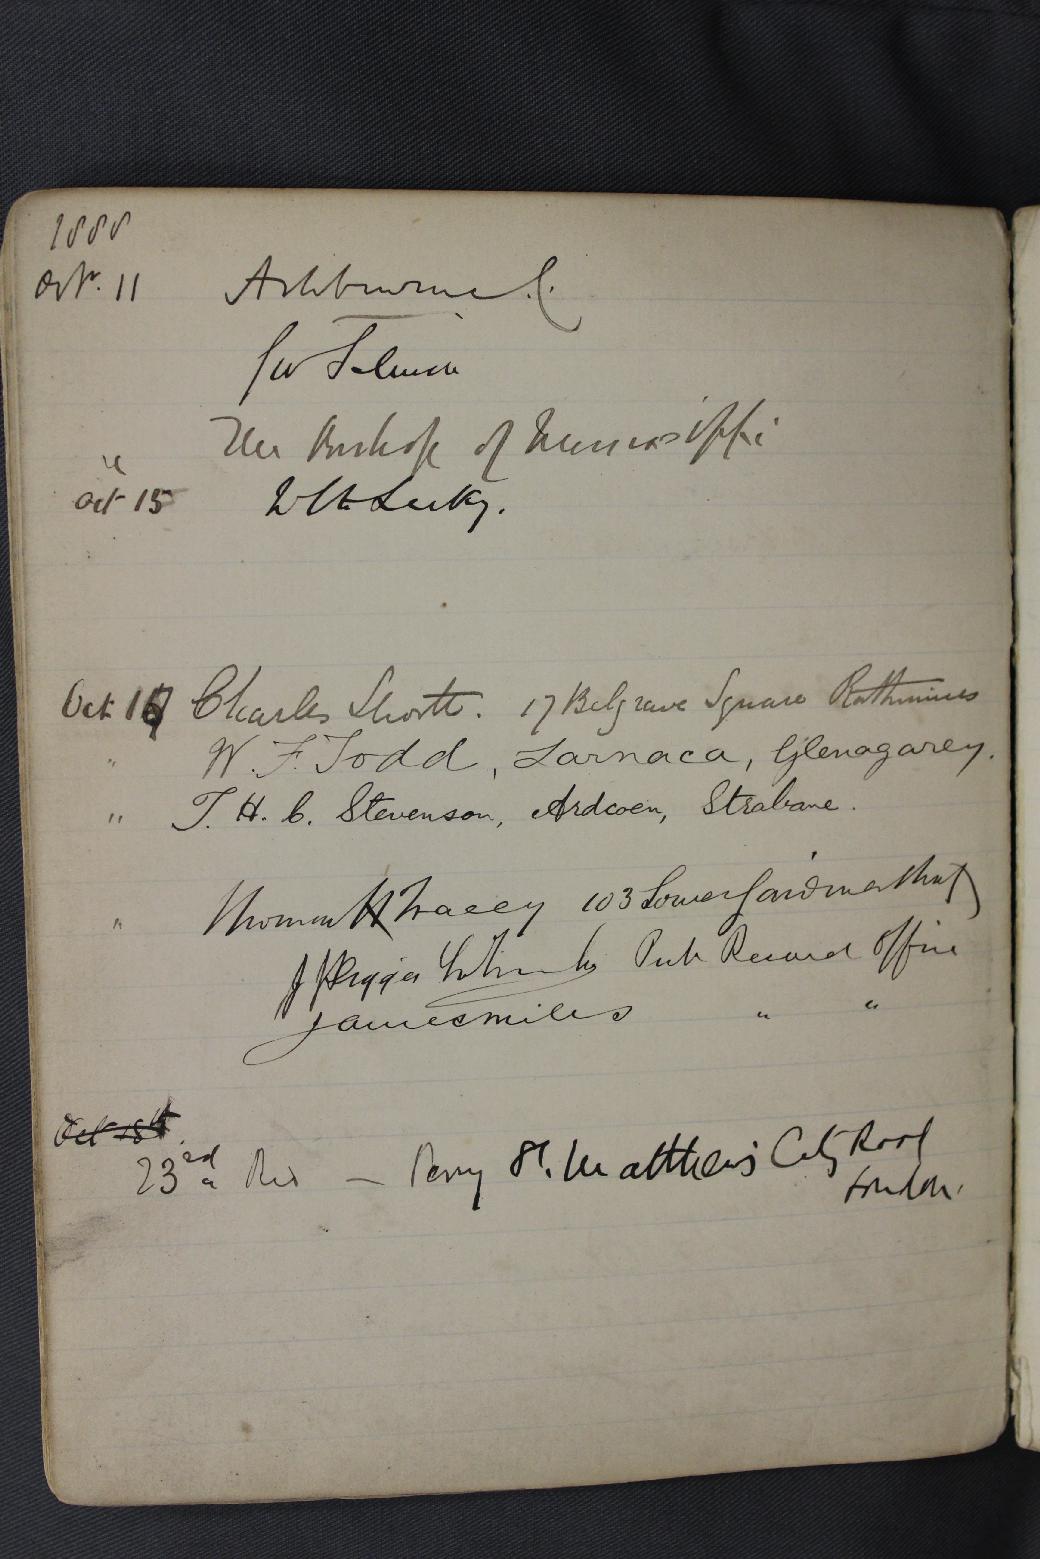 1888
Octr. 11 Ashbourne C.
Geo Salmon
The Bishop of Mississippi
"
Oct 15 W E H Lecky.
Oct 17 Charles Shortt. 17 Belgrave Square Rathmines
" W. F. Todd, Larnaca, Glenagarey.
" T. H. C. Stevenson, Ardcoen, Strabane.
" Thomas H Tracey 103 Lower Gardiner Street
J J Digges Pub Record Office
James Mills " "
Oct 18th
23rd Perry St. Matthews City Road
London.